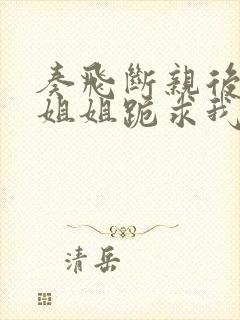 秦飛斷親後
姐姐跪求我
清岳